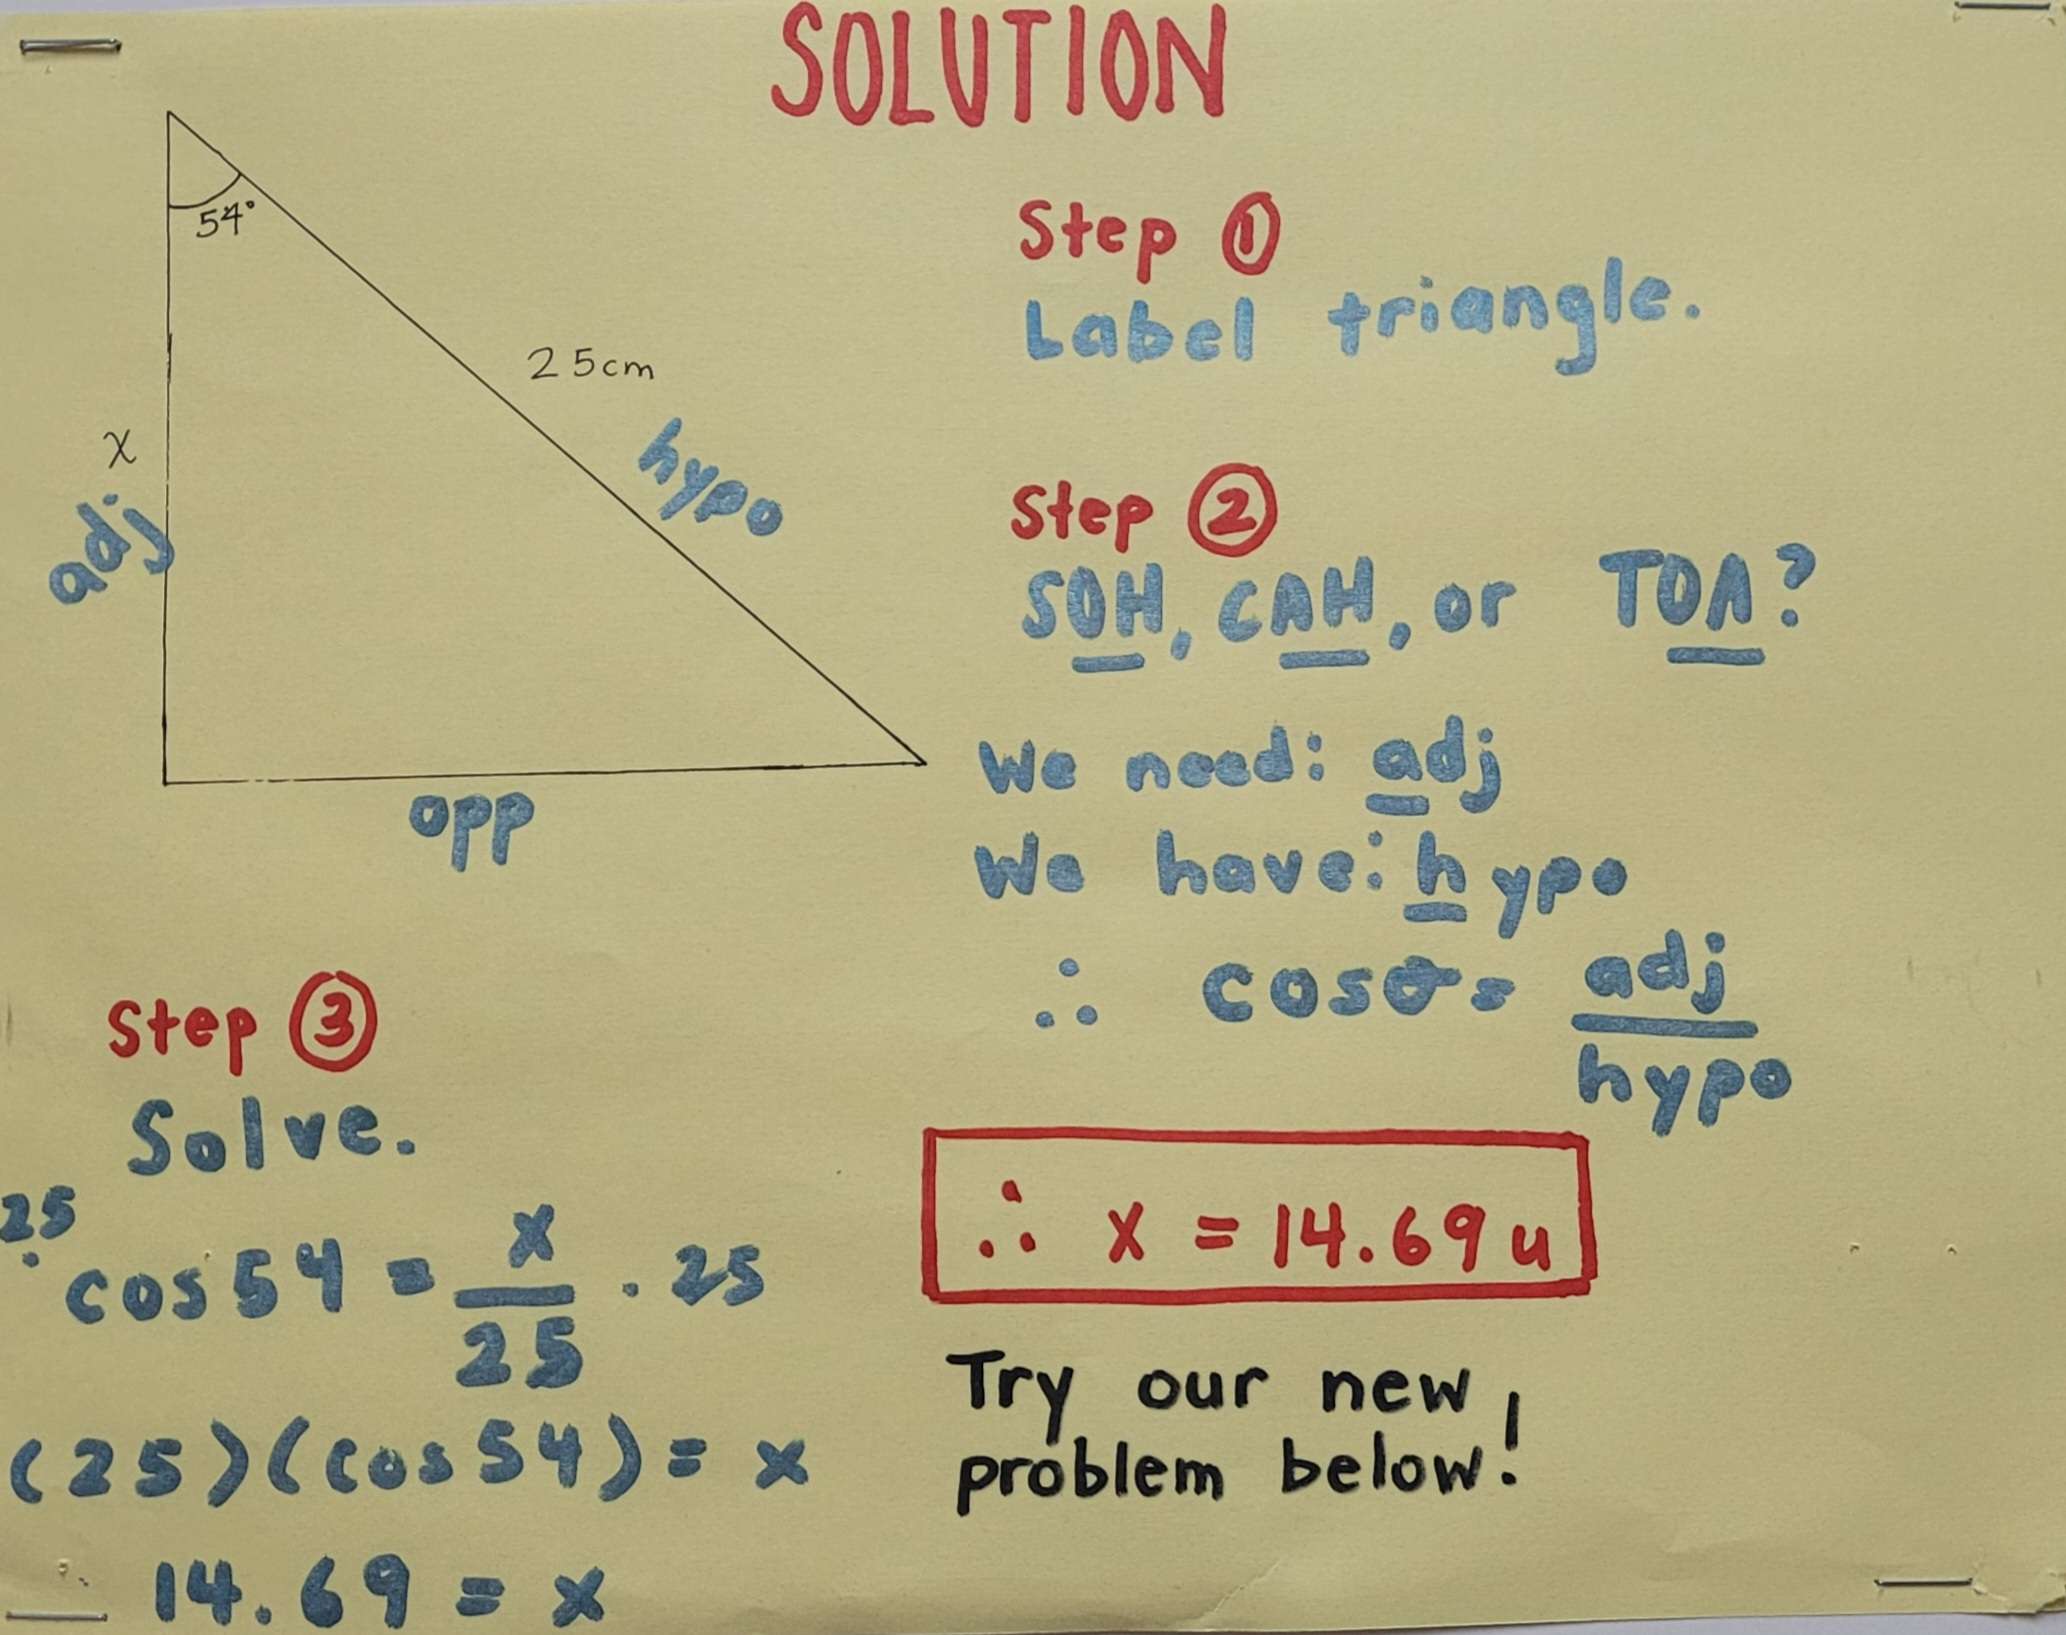 SOLUTION
54°
25cm
hypo
x
adj
opp
Step ①
Label triangle.
Step ②
SOH, CAH, or TOA?
We need: adj
We have: hypo
∴ cosθ = adj
hypo
Step ③
Solve.
25 · cos54 = x · 25
25
(25)(cos54) = x
14.69 = x
∴ x = 14.69 u
Try our new
problem below!